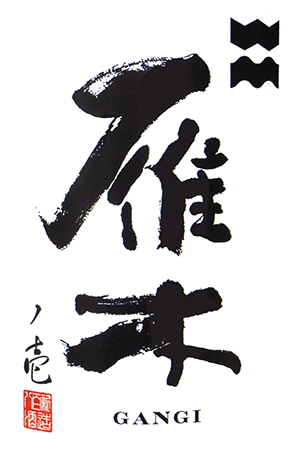 雁木
ノ壱
GANGI